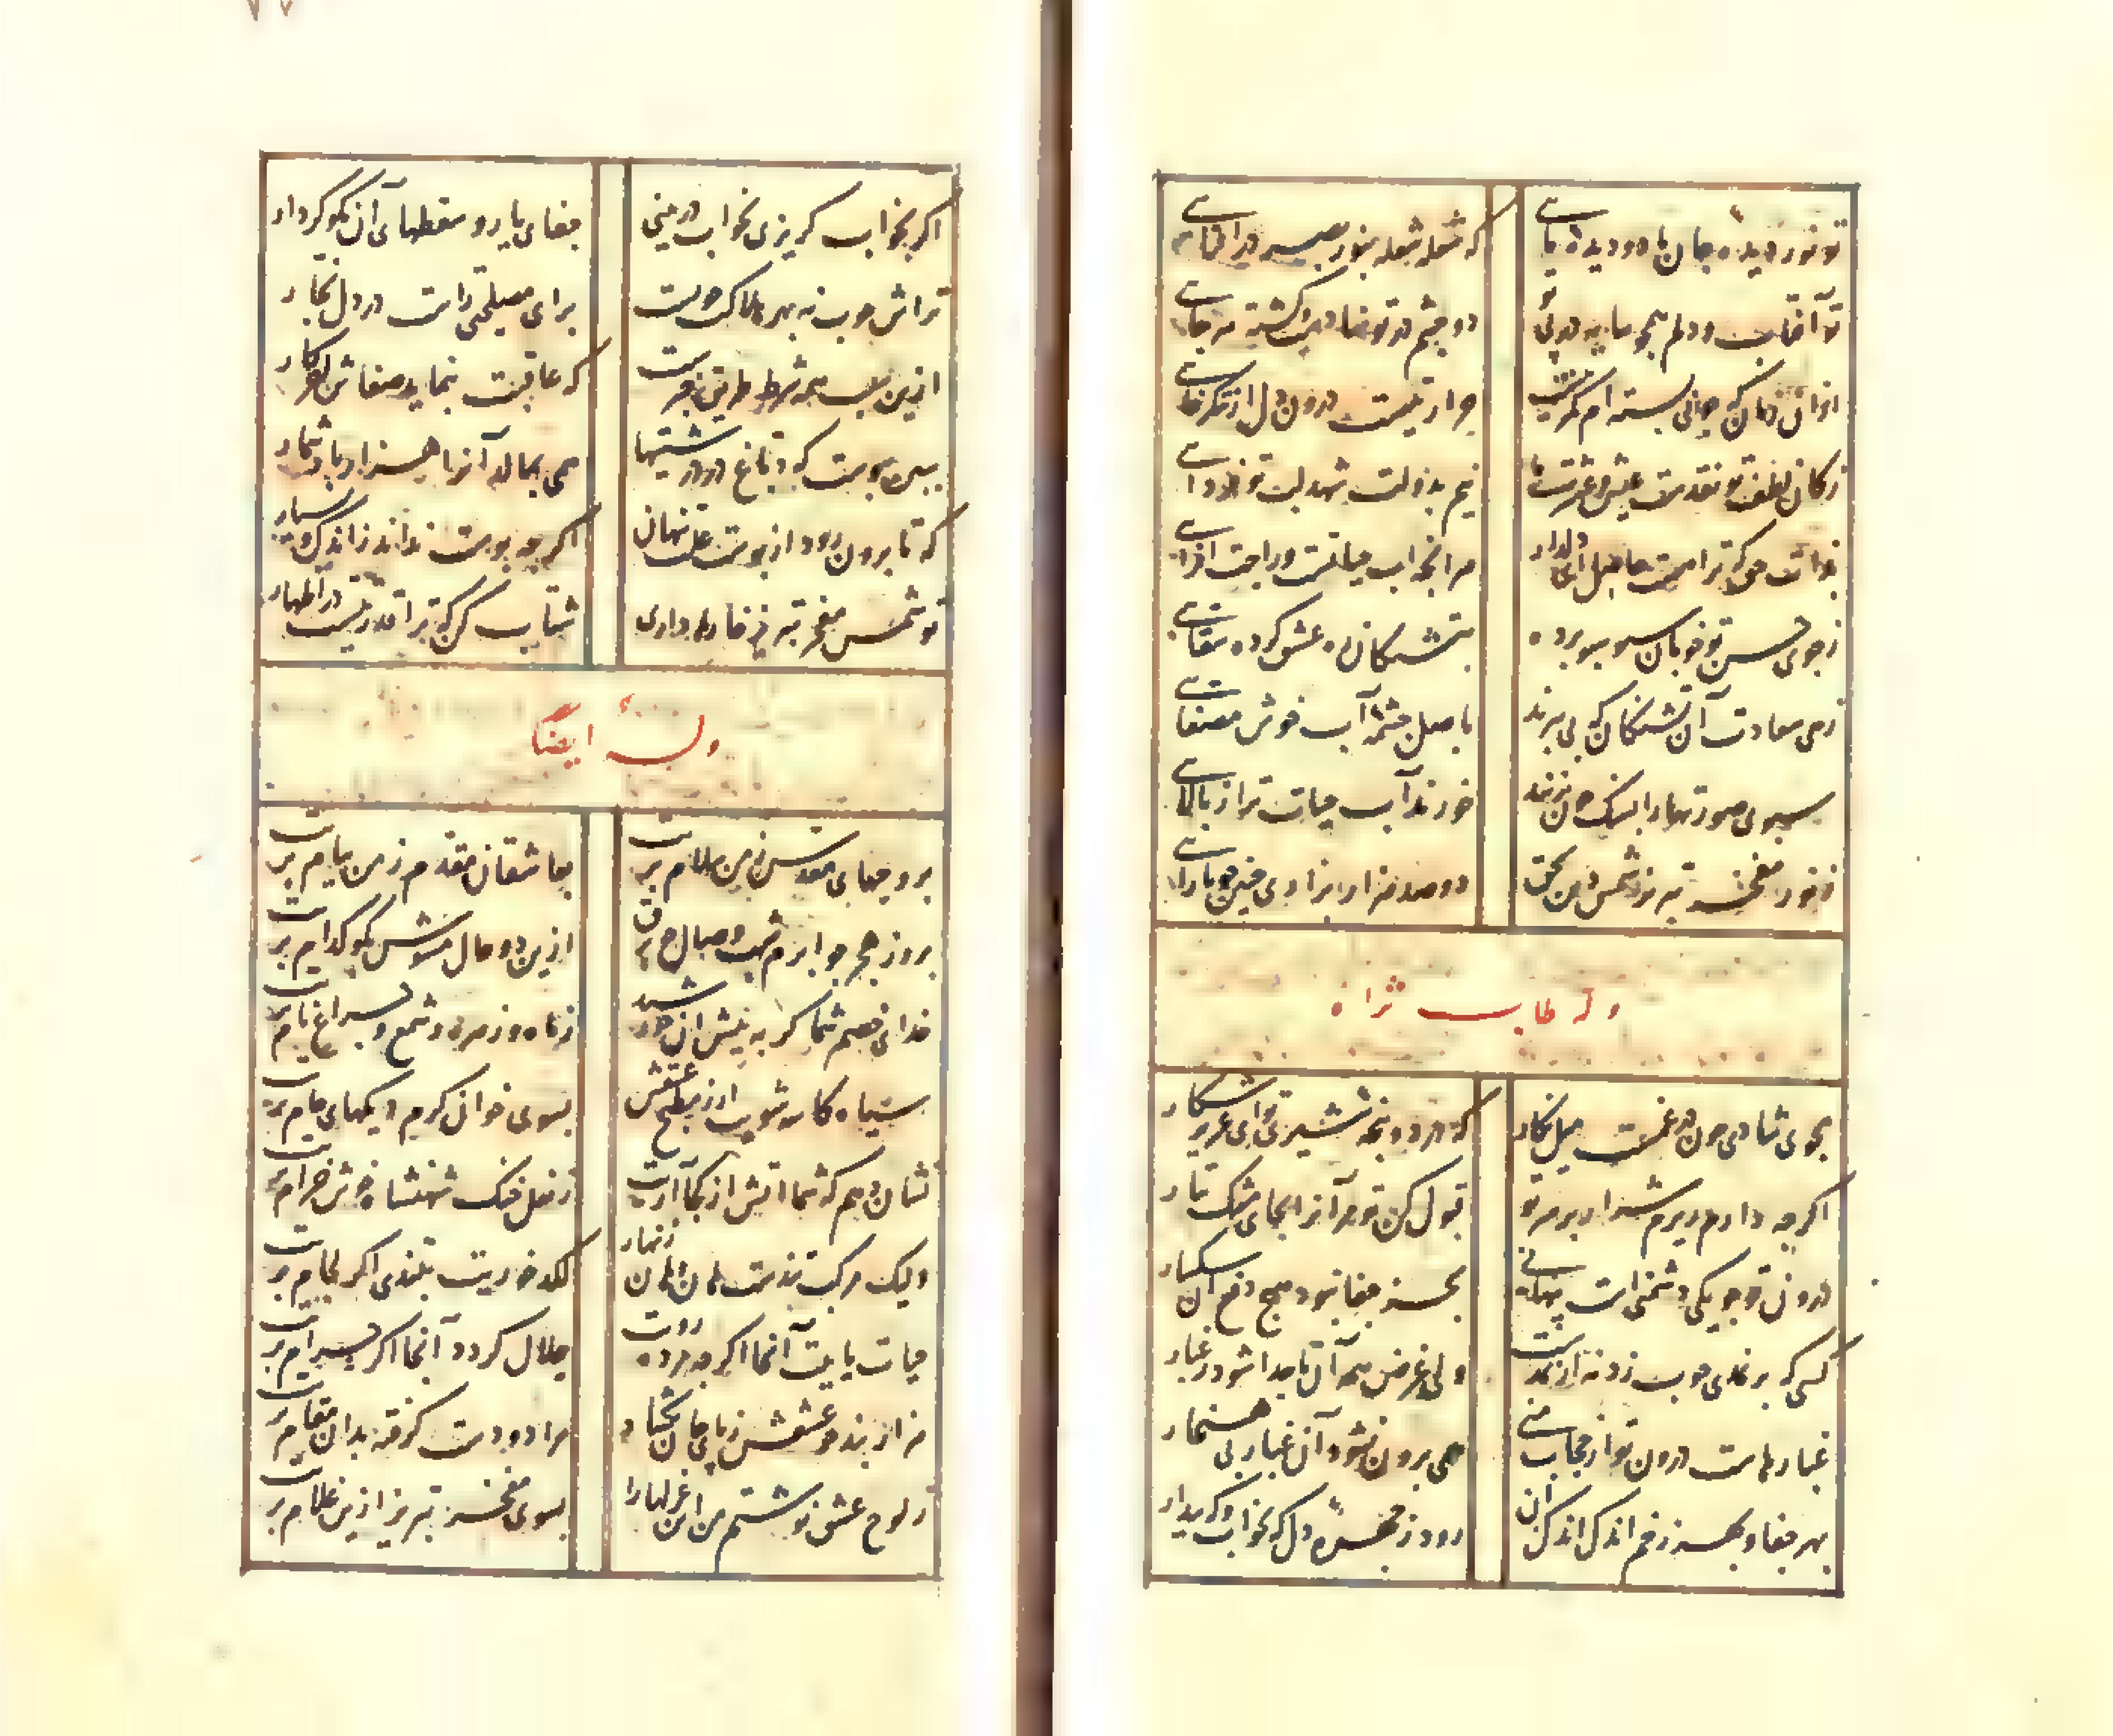 تو نور دیده جان یا دو دیده مایی
که شعله شعله بنور بصر درافزایی
تو آفتاب و دلم همچو سایه در پی تو
دو چشم در تو نهاده است گشته هرجایی
از آن زمان که چو نی بسته ام کمر پیشت
حرارتیست درون دل از شکرخایی
ز کان لطف تو نقدست عیش و عشرت ما
نیم بدولت شهد لب تو
بذات حق که ترا
مرا بخواب
ز جوی حسن تو خوبان سبو سبو برده
بتشنگان ره عشق کرده سقایی
زهی سعادت آن تشنگان که بی برند
باصل چشمه آب خوش مصفایی
سبوی صورتها را بسنگ برنزنند
خورند آب حیات ترا ز بالایی
ز نور مفخر تبریز شمس دین بحق
دو صد هزار
وله طاب ثراه
بجوی شادی چون در غمست میل نگار
که در دو پنجه شیری تو ای عزیز شکار
اگرچه دلدارم ریزم شرار بر سر تو
قبول کن تو مر آنرا بجای مشک تتار
درون تو چو یکی دشمنی است پنهانی
بجز جفا نبود هیچ دفع آن سگسار
کسی که بر نمدی چوب زد نه از نمدست
ولی غرض همه آن تا جدا شود ز غبار
غبارهاست درون تو از حجاب منی
همی برون نشود آن غبار بی هنجار
بهر جفا و بهر زخم اندک اندک آن
رود ز چهره دل گه بخواب و گه بیدار
اگر بخواب گریزی بخواب در بینی
جفای یار و سقطهای آن نکو کردار
تراش چوب نه بهر هلاک چوبست
برای مصلحتی راست در دل نجار
ازین سبب همه شر طریق حق خیرست
که عاقبت بنماید صفاش آخر کار
ببین بپوست که دباغ در درشتیها
همی بمالد آنرا هزار بار شمار
که تا برون رود از پوست علت پنهان
اگرچه پوست نداند ز اندک و بسیار
تو شمس مفخر تبریز خارها داری
شتاب کن که ترا قدرتیست در اظهار
وله ایضا
برو جهای مقدس ز من سلام برید
بعاشقان مقدم ز من پیام برید
بروز هجر چو ابرم شب وصال چو برق
ازین دو حال مشوش بگو کدام برید
خدای خصم شما گر به پیش آن خورشید
ز ماه و زهره و شمع و چراغ نام برید
سیاه کاسه شوید ار ز مطبخ عشقش
بسوی خوان کرم دیگهای خام برید
نشان دهم که شما آتش از کجا آرید
ز نعل خنگ شهنشاه خوش خرام برید
ولیک مرکب تندست هان و هان زنهار
لگد خورید بتندی اگر لجام برید
حیات یابد آنجا اگرچه مرده روید
حلال گردد آنجا اگر حرام برید
مرا ز بند عشقش ز پای جان بگشاد
مرا دو دست گرفته بدان مقام برید
ز لوح عشق نوشتم من این غزلها را
بسوی مفخر تبریز ازین غلام برید